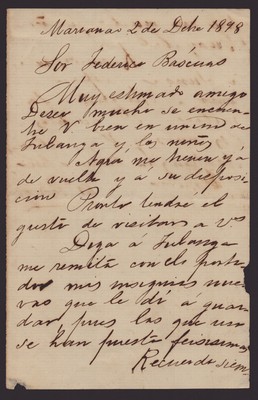 Marianao 2 de Dcbre 1898
Sor Federico Báscuas
Muy estimado amigo
Deseo mucho se encuen-
tre V bien en union de
y los nenes
Aqui me tienen yá
de vuelta y á su disposi-
cion Pronto tendre el
gusto de visitar á Vs
Diga á
me remita con el porta-
dor mis mosquias nue-
vas que le dí a guar-
dar, pues las que uso
se han puesto feisimas
Recuerdos siem-